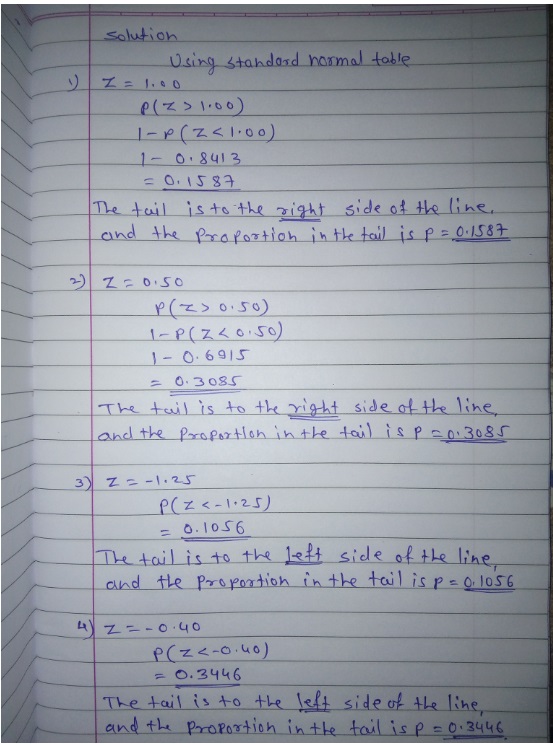 solution
Using standard normal table
1) Z = 1.00
P(Z > 1.00)
1-P(Z < 1.00)
1- 0.8413
= 0.1587
The tail is to the right side of the line,
and the proportion in the tail is p = 0.1587
2) Z = 0.50
P(Z > 0.50)
1-P(Z < 0.50)
1- 0.6915
= 0.3085
The tail is to the right side of the line,
and the proportion in the tail is p = 0.3085
3) Z = -1.25
P(Z < -1.25)
= 0.1056
The tail is to the left side of the line,
and the proportion in the tail is p = 0.1056
4) Z = -0.40
P(Z < -0.40)
= 0.3446
The tail is to the left side of the line,
and the proportion in the tail is p = 0.3446